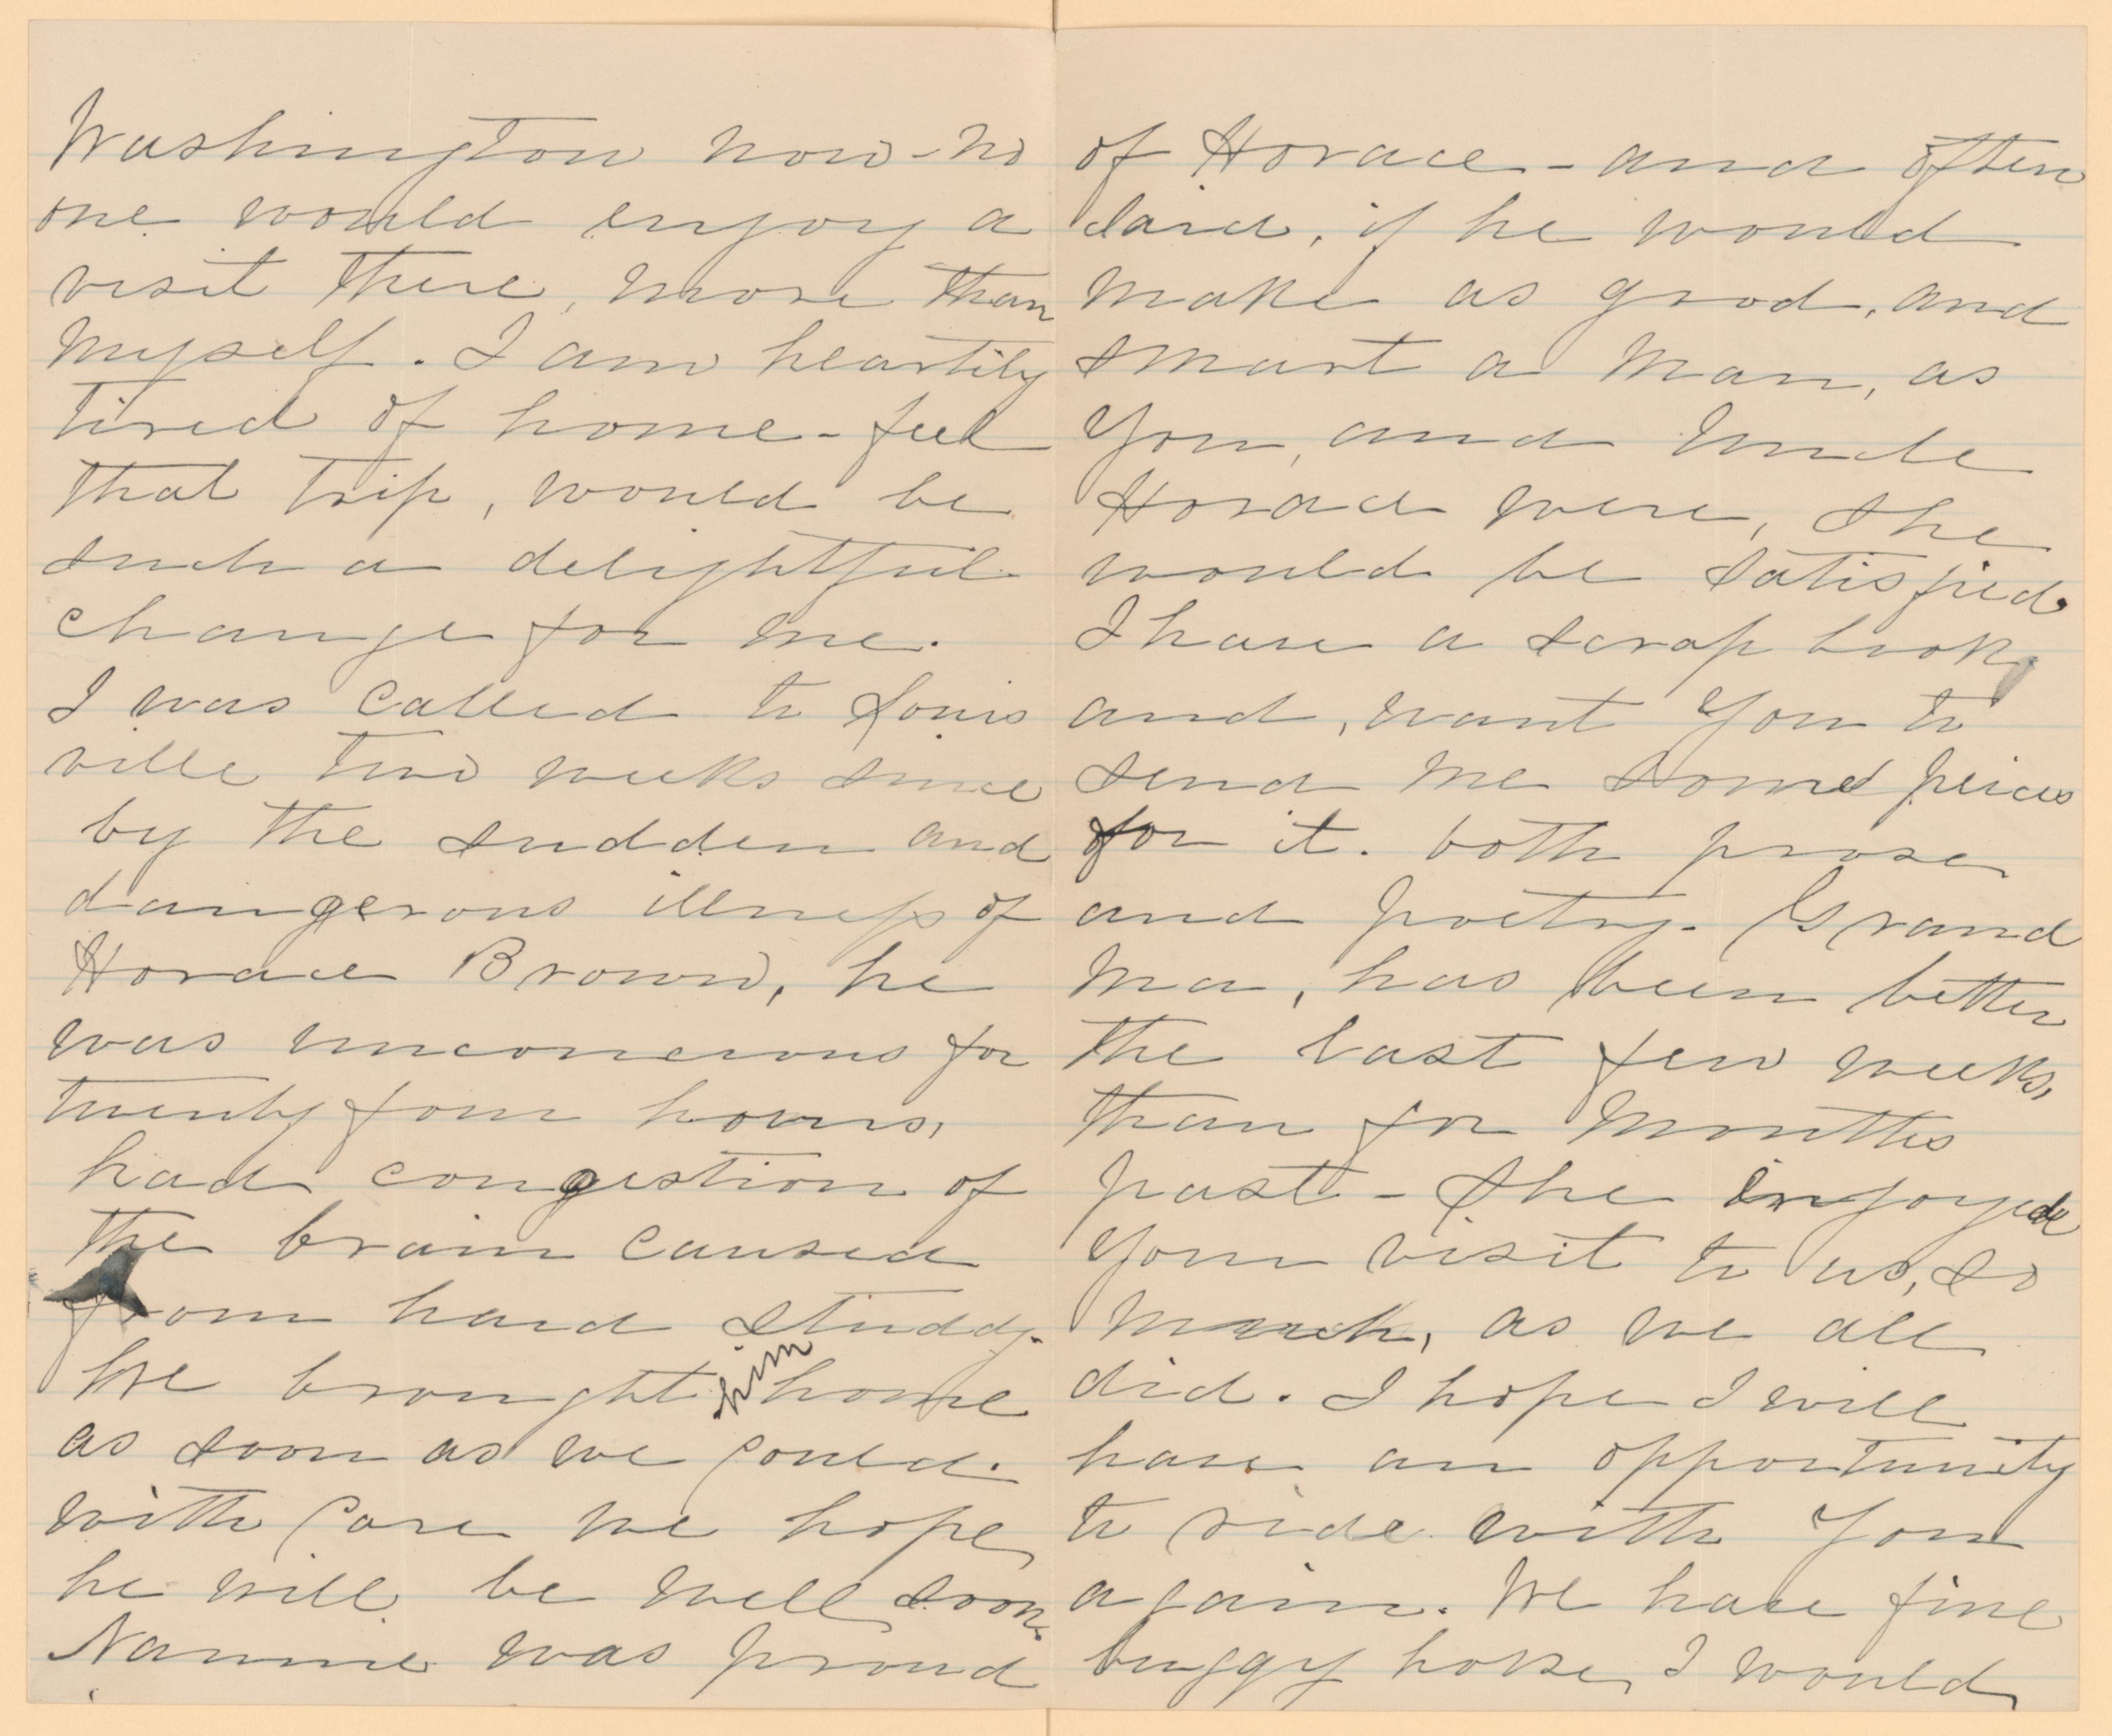 Washington now - no
one would enjoy a
visit there, more than
myself. I am heartily
tired of home - feel
that trip, would be
such a delightful
change for me.
I was called to Louis
ville two weeks since
by the sudden and
dangerous illness of
Horace Brown, he
was unconcious for
twenty four hours,
had congestion of
the brain caused
from hard studdy.
We brought him home
as soon as we could.
with care we hope
he will be well soon.
Nannie was proud
of Horace - and often
said, if he would
make as good, and
smart a man, as
You, and Uncle
Horace were, she
would be satisfied.
I have a scrap book,
and, want You to
send me some peices
for it. both prose
and poetry. Grand
Ma, has been better
the last few weeks,
than for months
past - She enjoyed
Your visit to us, so
much, as we all
did. I hope I will
have an opportunity
to ride with You
again. We have fine
buggy horse, I would